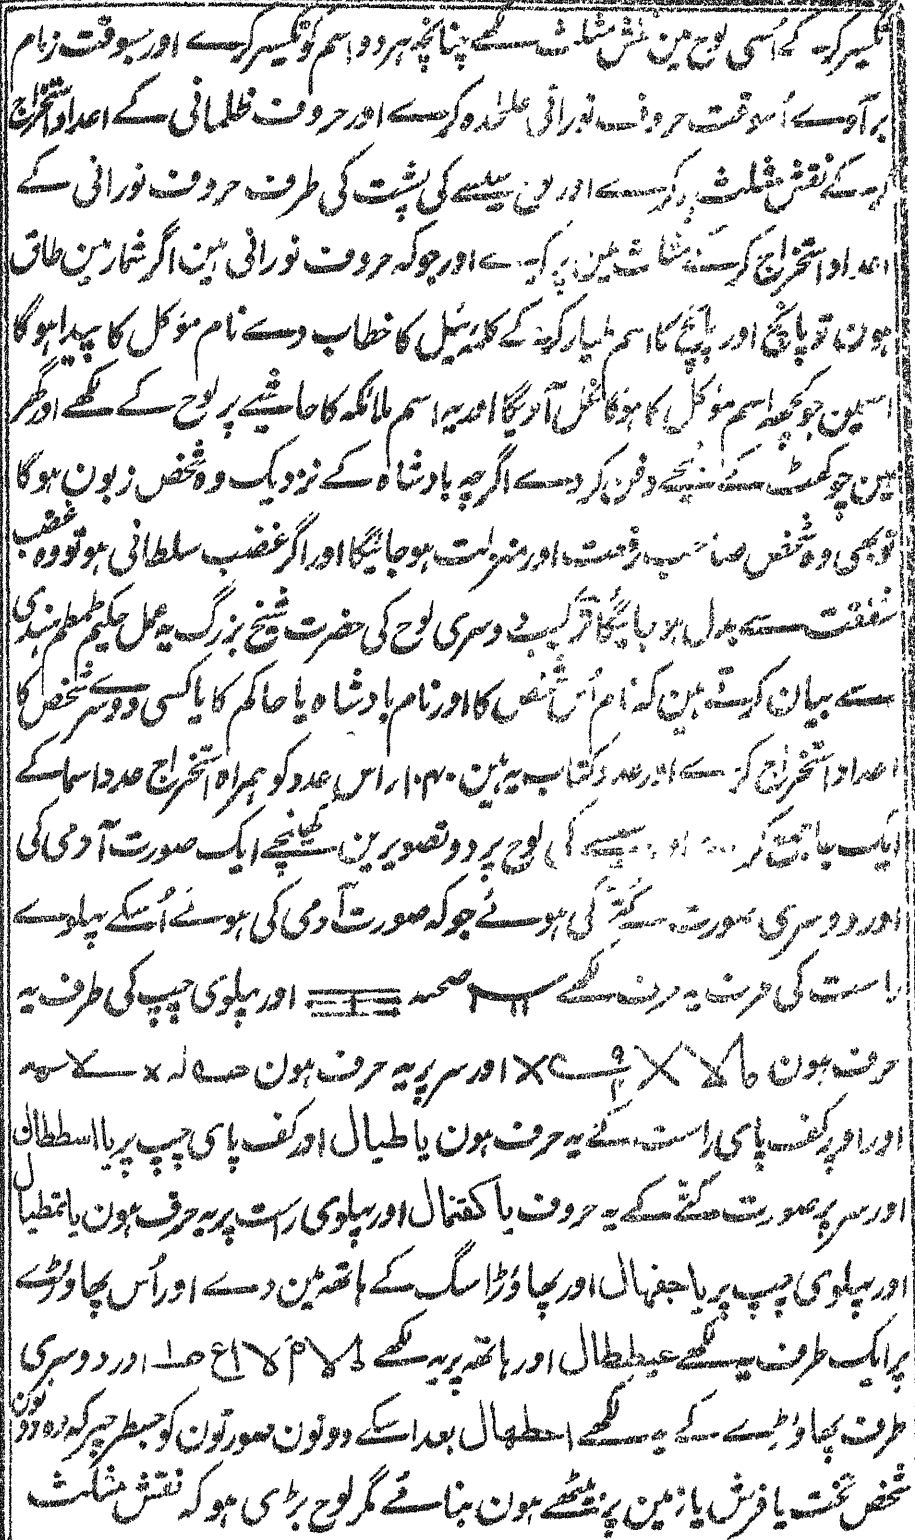 تکسیر کرکے اُسی لوح مین نقش مثلث لکھے چنانچہ ہر دو اسم کو تکسیر کرے اور بسوقت زمام
برآوے اُسوقت حروف نورانی علٰحدہ کرے اور حروف ظلمانی کے اعداد استخراج
کرکے نقش مثلث پر کرے اور سیسے کی پشت کی طرف حروف نورانی کے
اعداد استخراج کرکے مثلث مین پر کرے اور جوکہ حروف نورانی ہین اگر شمار مین طاق
ہون تو پانچ اور پانچ کا اسم طیار کرکے کلمہ ئیل کا خطاب دے نام موکل کا پیدا ہوگا
اسمین جو کچھ اسم موکل کا ہوگا نکل آویگا اور یہ اسم ملائکہ کا حاشیے پر لوح کے لکھے اور گھر
مین چوکھٹ کے نیچے دفن کر دے اگرچہ بادشاہ کے نزدیک وہ شخص زبون ہوگا
توبھی وہ شخص صاحب رفعت اور منزلت ہو جائیگا اور اگر غضب سلطانی ہو تو وہ غضب
شفقت سے بدل ہو جائیگا ترکیب دوسری لوح کی حضرت شیخ بزرگ یہ عمل حکیم طمطم ہندی
سے بیان کرتے ہین کہ نام اُس شخص کا اور نام بادشاہ یا حاکم کا یا کسی دوسرے شخص کا
اعداد استخراج کرے اور عدد کتاب یہ ہین ۱۰۴۰ اس عدد کو ہمراہ استخراج عدد اسما کے
ایک جا جمع کرے اور سیسے کی لوح پر دو تصویرین کھینچے ایک صورت آدمی کی
اور دوسری صورت کُتّے کی ہوئے جوکہ صورت آدمی کی ہونے اُسکے پہلوے
راست کی طرف یہ حرف لکھے اور پہلوی چپ کی طرف یہ
حرف ہون اور سر پر یہ حرف ہون
اور اوپر کف پای راست کے یہ حرف ہون یا طیال اور کف پای چپ پر یا اسططال
اور سر پر صورت کتّے کے یہ حروف یا کفتمال اور پہلوی راست پر یہ حرف ہون یا تمطیال
اور پہلوی چپ پر یا جفہال اور پھاوڑا سگ کے ہاتھ مین دے اور اُس پھاوڑے
پر ایک طرف یہ لکھے عیططال اور ہاتھ پر یہ لکھے اور دوسری
طرف پھاوڑے کے یہ لکھے اطہال بعد اسکے دونون صورتون کو جسطرح پر کہ وہ دونون
شخص تخت یا فرش یا زمین پر بیٹھے ہون بنائے مگر لوح بڑی ہو کہ نقش مثلث